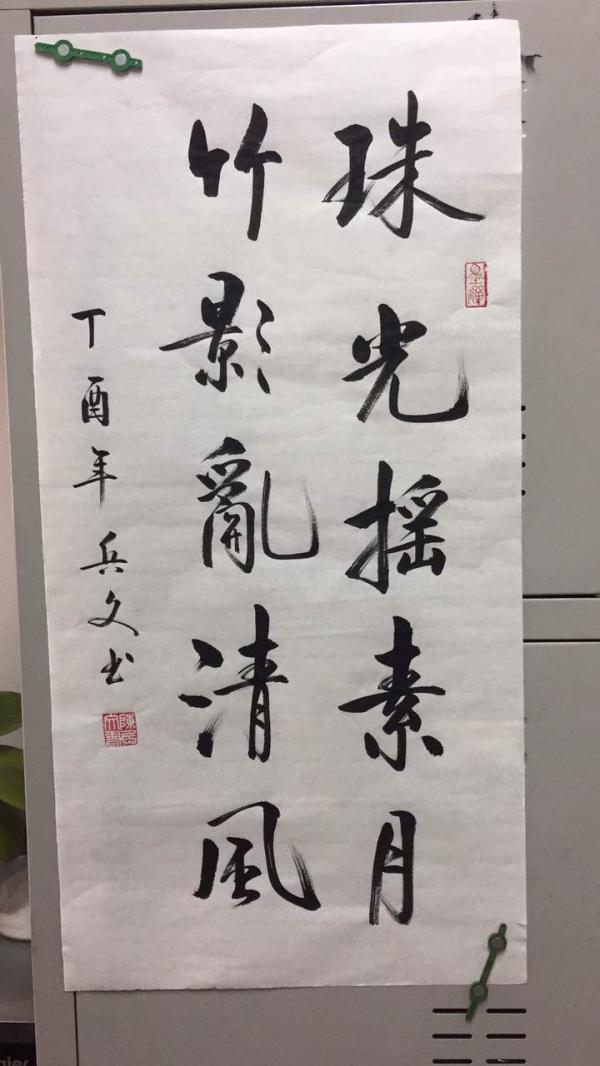 珠光摇素月
竹影亂清風
丁酉年 兵文书